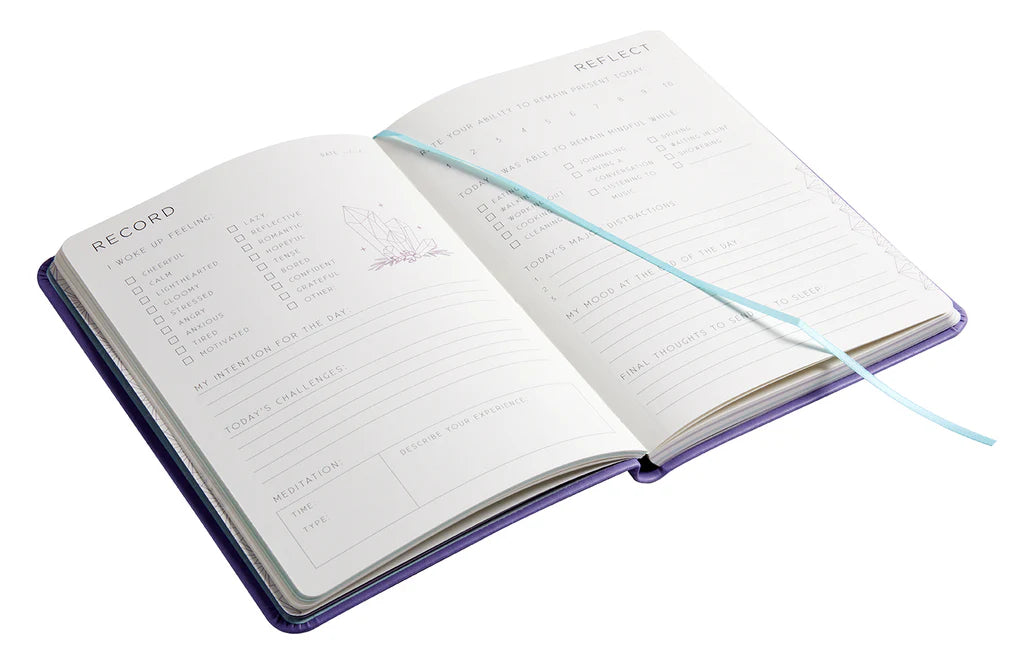 DATE
RECORD
I WOKE UP FEELING:
CHEERFUL
CALM
LIGHTHEARTED
GLOOMY
STRESSED
ANGRY
ANXIOUS
TIRED
MOTIVATED
LAZY
REFLECTIVE
ROMANTIC
HOPEFUL
TENSE
BORED
CONFIDENT
GRATEFUL
OTHER
MY INTENTION FOR THE DAY:
TODAY'S CHALLENGES:
MEDITATION:
TIME:
TYPE:
DESCRIBE YOUR EXPERIENCE:
REFLECT
RATE YOUR ABILITY TO REMAIN PRESENT TODAY
1 2 3 4 5 6 7 8 9 10
TODAY I WAS ABLE TO REMAIN MINDFUL WHILE
EATING
WORKING OUT
COOKING
CLEANING
JOURNALING
HAVING A
CONVERSATION
LISTENING TO
MUSIC
DRIVING
WAITING IN LINE
SHOWERING
TODAY'S MAJOR DISTRACTIONS:
1.
2.
3.
MY MOOD AT THE END OF THE DAY
FINAL THOUGHTS TO SEND TO SLEEP: